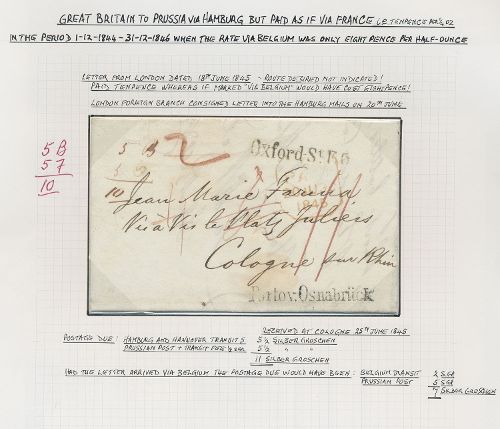 GREAT BRITAIN TO PRUSSIA VIA HAMBURG BUT PAID AS IF VIA FRANCE I.E TENPENCE PER ½ OZ
IN THE PERIOD 1-12-1844 - 31-12-1846 WHEN THE RATE VIA BELGIUM WAS ONLY EIGHT PENCE PER HALF-OUNCE
LETTER FROM LONDON DATED 18TH JUNE 1845 - ROUTE DESIRED NOT INDICATED!
PAID TENPENCE WHEREAS IF MARKED "VIA BELGIUM" WOULD HAVE COST EIGHTPENCE!
LONDON FOREIGN BRANCH CONSIGNED LETTER INTO THE HAMBURG MAILS ON 20TH JUNE
5 B
57
10
5 B 2
Oxford-St
10
1845
Jean Marie Farina
Vis a Vis le Platz Juliers
Cologne sur Rhin
Porto v. Osnabrück
RECEIVED AT COLOGNE 25TH JUNE 1845
POSTAGE DUE: HAMBURG AND HANNOVER TRANSITS 5½ SILBER GROSCHEN
PRUSSIAN POST + TRANSIT FEE 5½ " "
11 SILBER GROSCHEN
HAD THE LETTER ARRIVED VIA BELGIUM THE POSTAGE DUE WOULD HAVE BEEN: BELGIUM TRANSIT 2 SGR
PRUSSIAN POST 5 SGR
7 SILBER GROSCHEN